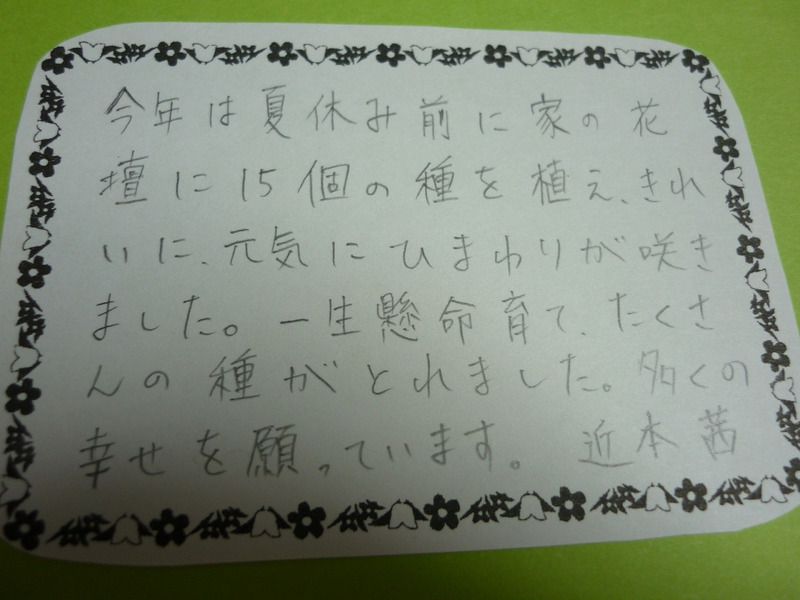 今年は夏休み前に家の花
壇に15個の種を植え、きれ
いに、元気にひまわりが咲き
ました。一生懸命育て、たくさ
んの種がとれました。多くの
幸せを願っています。 近本茜